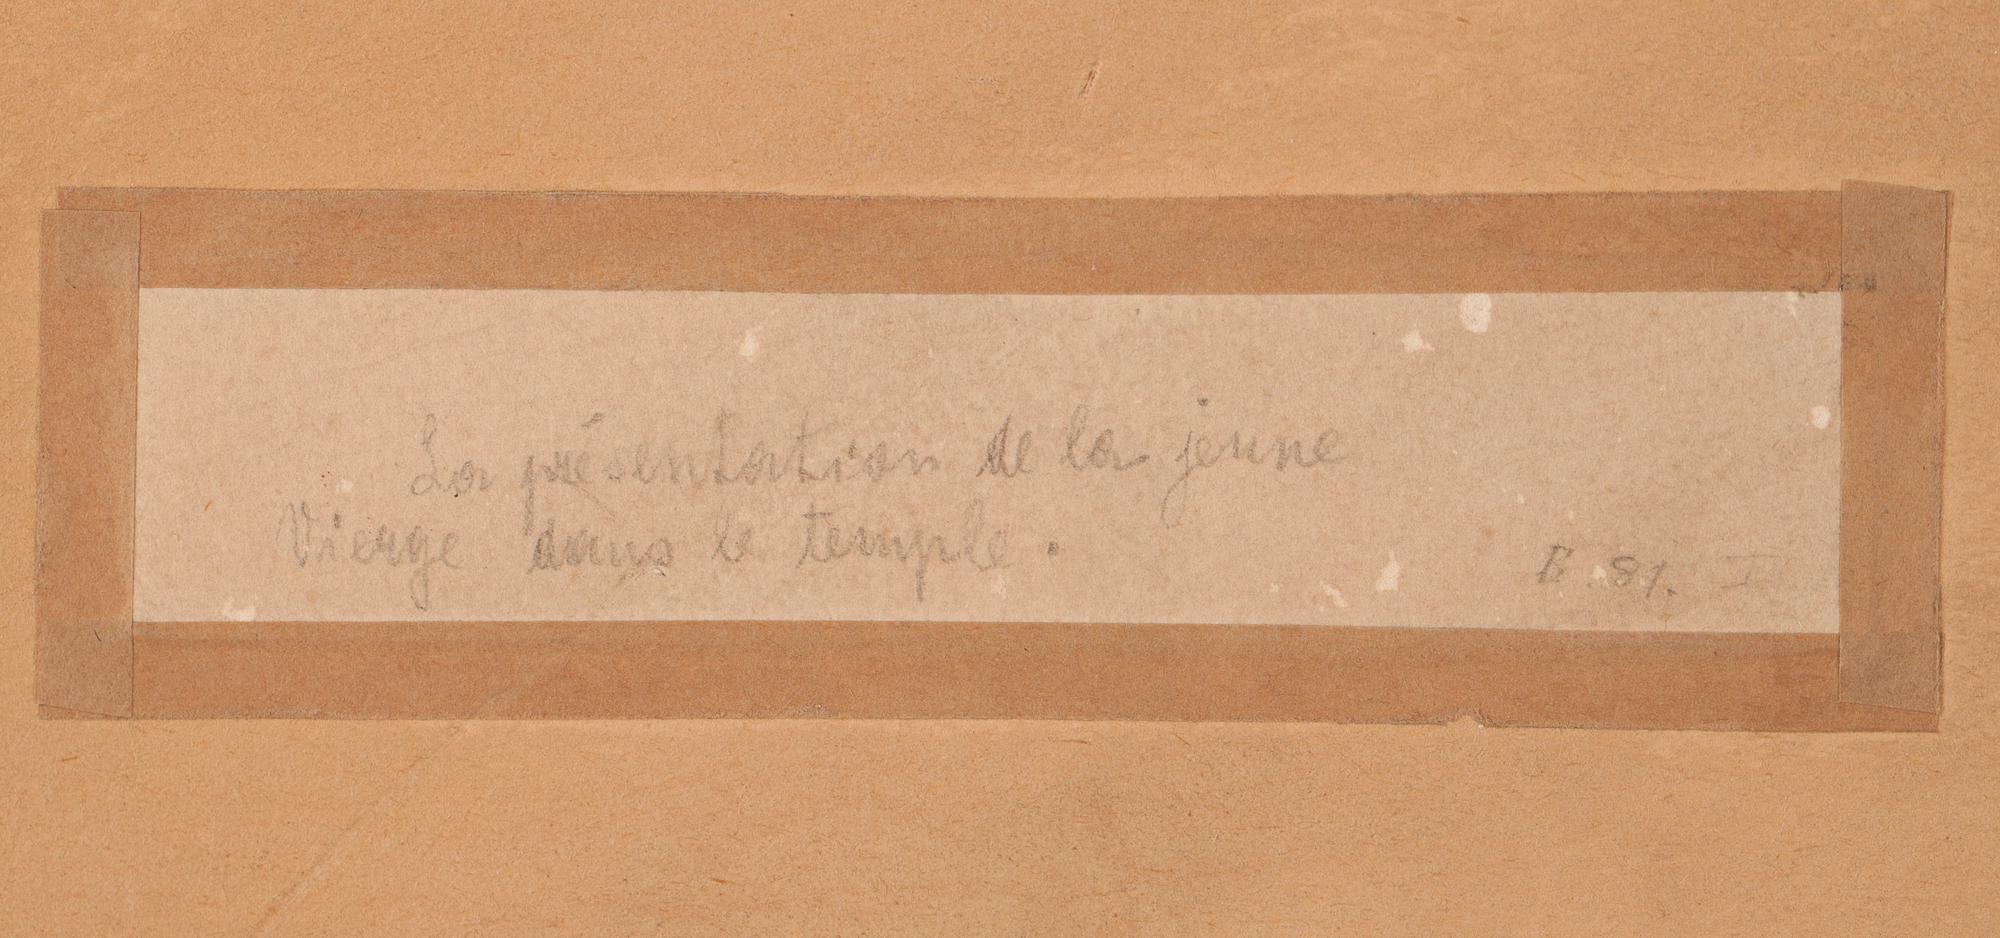 La présentation de la jeune
Vierge dans le temple.
B. 81. I